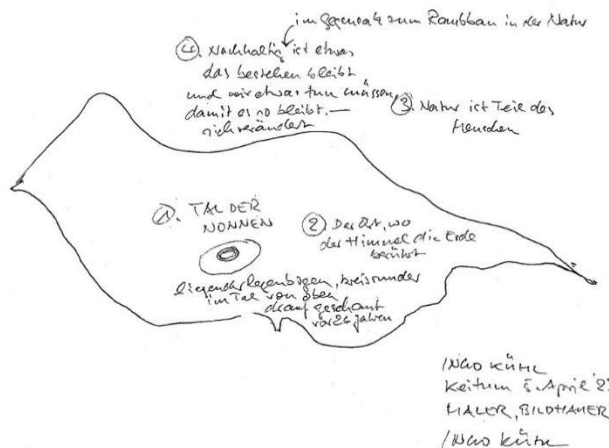 im Gegensatz zum Raubbau in der Natur
④. Nachhaltig ist etwas
das bestehen bleibt
und wir etwas tun müssen,
damit es so bleibt.—
sich verändert
③. Natur ist Teil des
Menschen
①. TAL DER
NONNEN
② Der Ort, wo
der Himmel die Erde
berührt
liegender Regenbogen, kreisrunder
im Tal von oben
drauf geschaut
vor 26 Jahren
INGO KÜHL
Keitum 5. April '2
MALER, BILDHAUER
INGO KÜHL